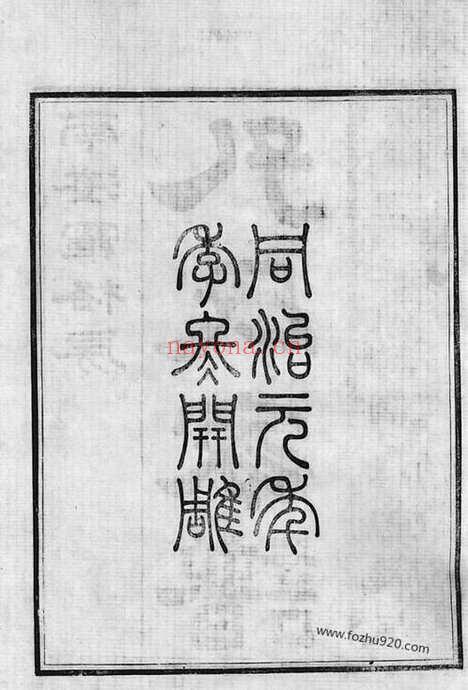 同治元年
季冬開雕
nayona.cn
www.fozhu920.com